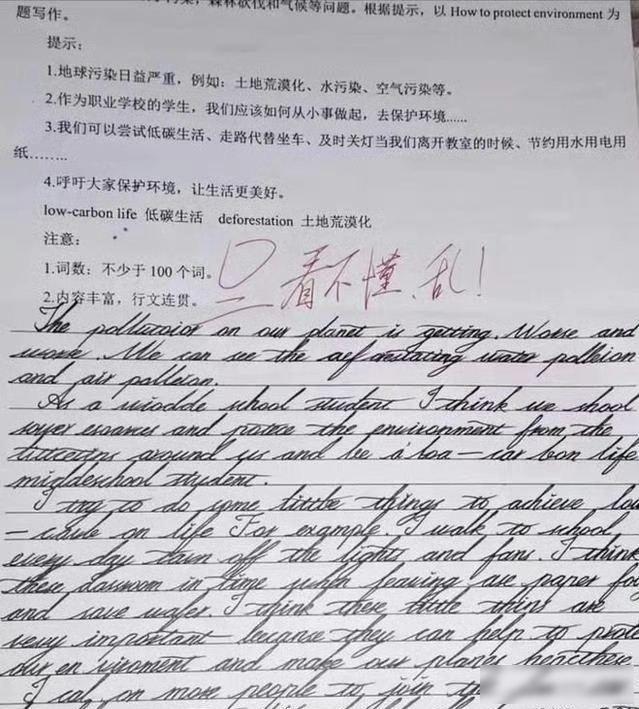 污染，森林砍伐和气候等问题。根据提示，以 How to protect environment 为
题写作。
提示：
1.地球污染日益严重，例如：土地荒漠化、水污染、空气污染等。
2.作为职业学校的学生，我们应该如何从小事做起，去保护环境......
3.我们可以尝试低碳生活、走路代替坐车、及时关灯当我们离开教室的时候、节约用水用电用
纸……..
4.呼吁大家保护环境，让生活更美好。
low-carbon life 低碳生活 deforestation 土地荒漠化
注意：
1.词数：不少于 100 个词。
2.内容丰富，行文连贯。
0
看不懂、乱！
The pollutoior on our planet is getting. Worse and
worse. We can see the water polleion
and air polleion.
As a student I think we shool
and the environment from the
around us and be a loa-car bon life
middeschool student.
I try to do some little things to achieve low
- on life For example. I walk to school
every day turn off the lights and fans. I think
these classroom in time when leaving are paper for
and save wafer. I think these little thins are
very important because they can help to prott
our en viroment and make our planes
I cay on more people to join